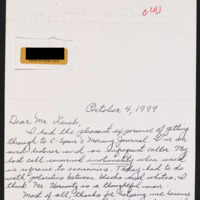 C.(6)
October 4, 1999
Dear Mr. Lamb,
I had the pleasant experience of getting
through to C-Span's Morning Journal. I'm an
avid listener and an infrequent caller. My
last call
in reference to Today's had to do
with between blacks and whites. I
think Mr. is a thoughtful man.
Most of all, thanks for helping me become